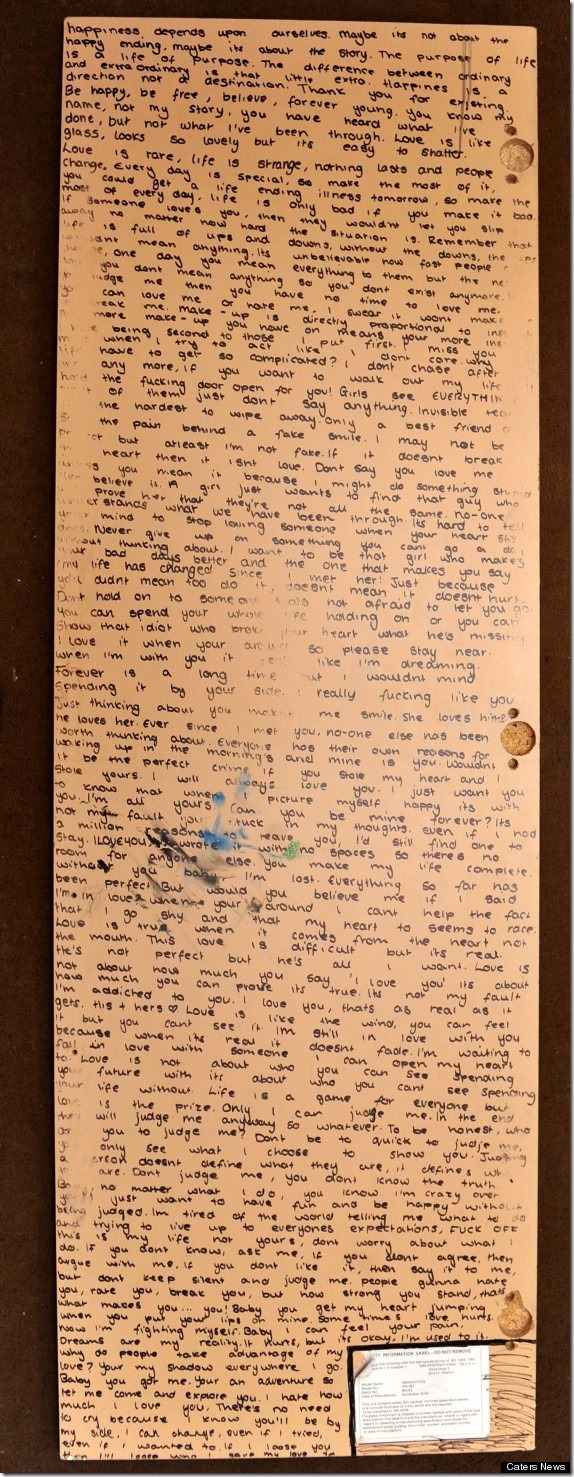 happiness depends upon ourselves. Maybe its not about the
happy ending, maybe its about the story. The purpose of life
is a life of purpose. The difference between ordinary
and extraordinary is that little extra. Happiness is a
direction not a destination. Thank you for existing.
Be happy, be free, believe, forever young. You know my
name, not my story, you have heard what ive
done, but not what I've been through. Love is like
glass, looks so lovely but its easy to shatter.
Love is rare, life is strange, nothing lasts and people
change. Every day is special, so make the most of it,
you could get a life ending illness tomorrow, so make the
most of every day. life is only bad if you make it bad.
If someone loves you, then they wouldnt let you slip
away no matter how hard the situation is. Remember that
life is full of ups and downs, without the downs, the ups
mean anything. Its unbelievable how fast people
one day you mean everything to them but the
you dont mean anything so you dont exist anymore.
judge me then you have no time to love me.
can love me or hate me, I swear it wont make
me. make-up is directly proportional to
more make-up you have on means your more
being second to those I put first. I miss you
when I try to act like I dont care. why
have to get so complicated? I dont chase after
any more, if you want to walk out my life
the fucking door open for you! Girls see
of them just dont say anything. Invisible
the hardest to wipe away. Only a best friend
the pain behind a fake smile. I may not be
but atleast I'm not fake. If it doesnt break
heart then it isnt love. Dont say you love me
you mean it because I might do something
believe is. A girl just wants to find that guy who
prove her that they're not all the same. no-one
stands what we have been through. Its hard to tell
mind to stop loving someone when your heart still
Never give up on something you cant go a day
thinking about. I want to be that girl who makes
bad days better and the one that makes you say
my life has changed since I met her! Just because
you didnt mean too do it, doesnt mean it doesnt hurt.
Dont hold on to someone not afraid to let you go
You can spend your whole life holding on or you can
show that idiot who broke your heart what he's missing
I love it when your so please stay near.
when I'm with you it like I'm dreaming.
Forever is a long time but I wouldnt mind
spending it by your side. I really fucking like you
Just thinking about you makes me smile. She loves him
he loves her. Ever since I met you, no-one else has been
worth thinking about. Everyone has their own reasons for
waking up in the morning's and mine is you. Wouldnt
it be the perfect crime if you stole my heart and I
stole yours. I will always love you. I just want you
to know that when I picture myself happy its with
you. I'm all yours can you be mine forever? Its
not my fault your stuck in my thoughts. even if I had
a million reasons to leave you I'd still find one to
stay. ILOVEYOU, I wrote it with spaces so there's no
room for anyone else. You make my life complete.
without you baby I'm lost. Everything so far has
been perfect But would you believe me if I said
I'm in love? when your around I cant help the fact
that I go shy and that my heart to seems to race.
Love is true when it comes from the heart not
the mouth. This love is difficult but its real.
He's not perfect but he's all I want. Love is
not about how much you say 'I love you' its about
how much you can prove its true. Its not my fault
I'm addicted to you. I love you, thats as real as it
gets. his + hers ♡ Love is like the wind, you can feel
it but you cant see it. I'm still in love with you
because when its real it doesnt fade. I'm waiting to
fall in love with someone I can open my heart
to. Love is not about who you can see spending
your future with its about who you cant see spending
your life without. Life is a game for everyone but
love is the prize. Only I can judge me. In the end
they will judge me anyway so whatever. To be honest, who
you to judge me? Dont be to quick to judge me,
you only see what I choose to show you. Judging
a person doesnt define what they are, it defines
are. Dont judge me, you dont know the truth
no matter what I do, you know I'm crazy over
you. I just want to have fun and be happy without
being judged. Im tired of the world telling me what to do
and trying to live up to everyones expectations, FUCK OFF
this is my life not yours, dont worry about what I
do. If you dont know, ask me, if you dont agree, then
argue with me, if you dont like it, then say it to me,
but dont keep silent and judge me. people gunna hate
you, rate you, break you, but how strong you stand, thats
what makes you... you! Baby you get my heart jumping
when you put your lips on mine. Some times love hurts.
now I'm fighting myself. Baby I can feel your pain.
Dreams are my reality. It hurts but its okay, I'm used to it.
why do people take advantage of my
love? Your my shadow everywhere I go.
Baby you got me. Your an adventure so
let me come and explore you. I hate how
much I love you. There's no need
to cry because I know you'll be by
my side. I can change, even if I tried,
even if I wanted to. If I loose you
SAFETY INFORMATION LABEL - DO NOT REMOVE
Caters News